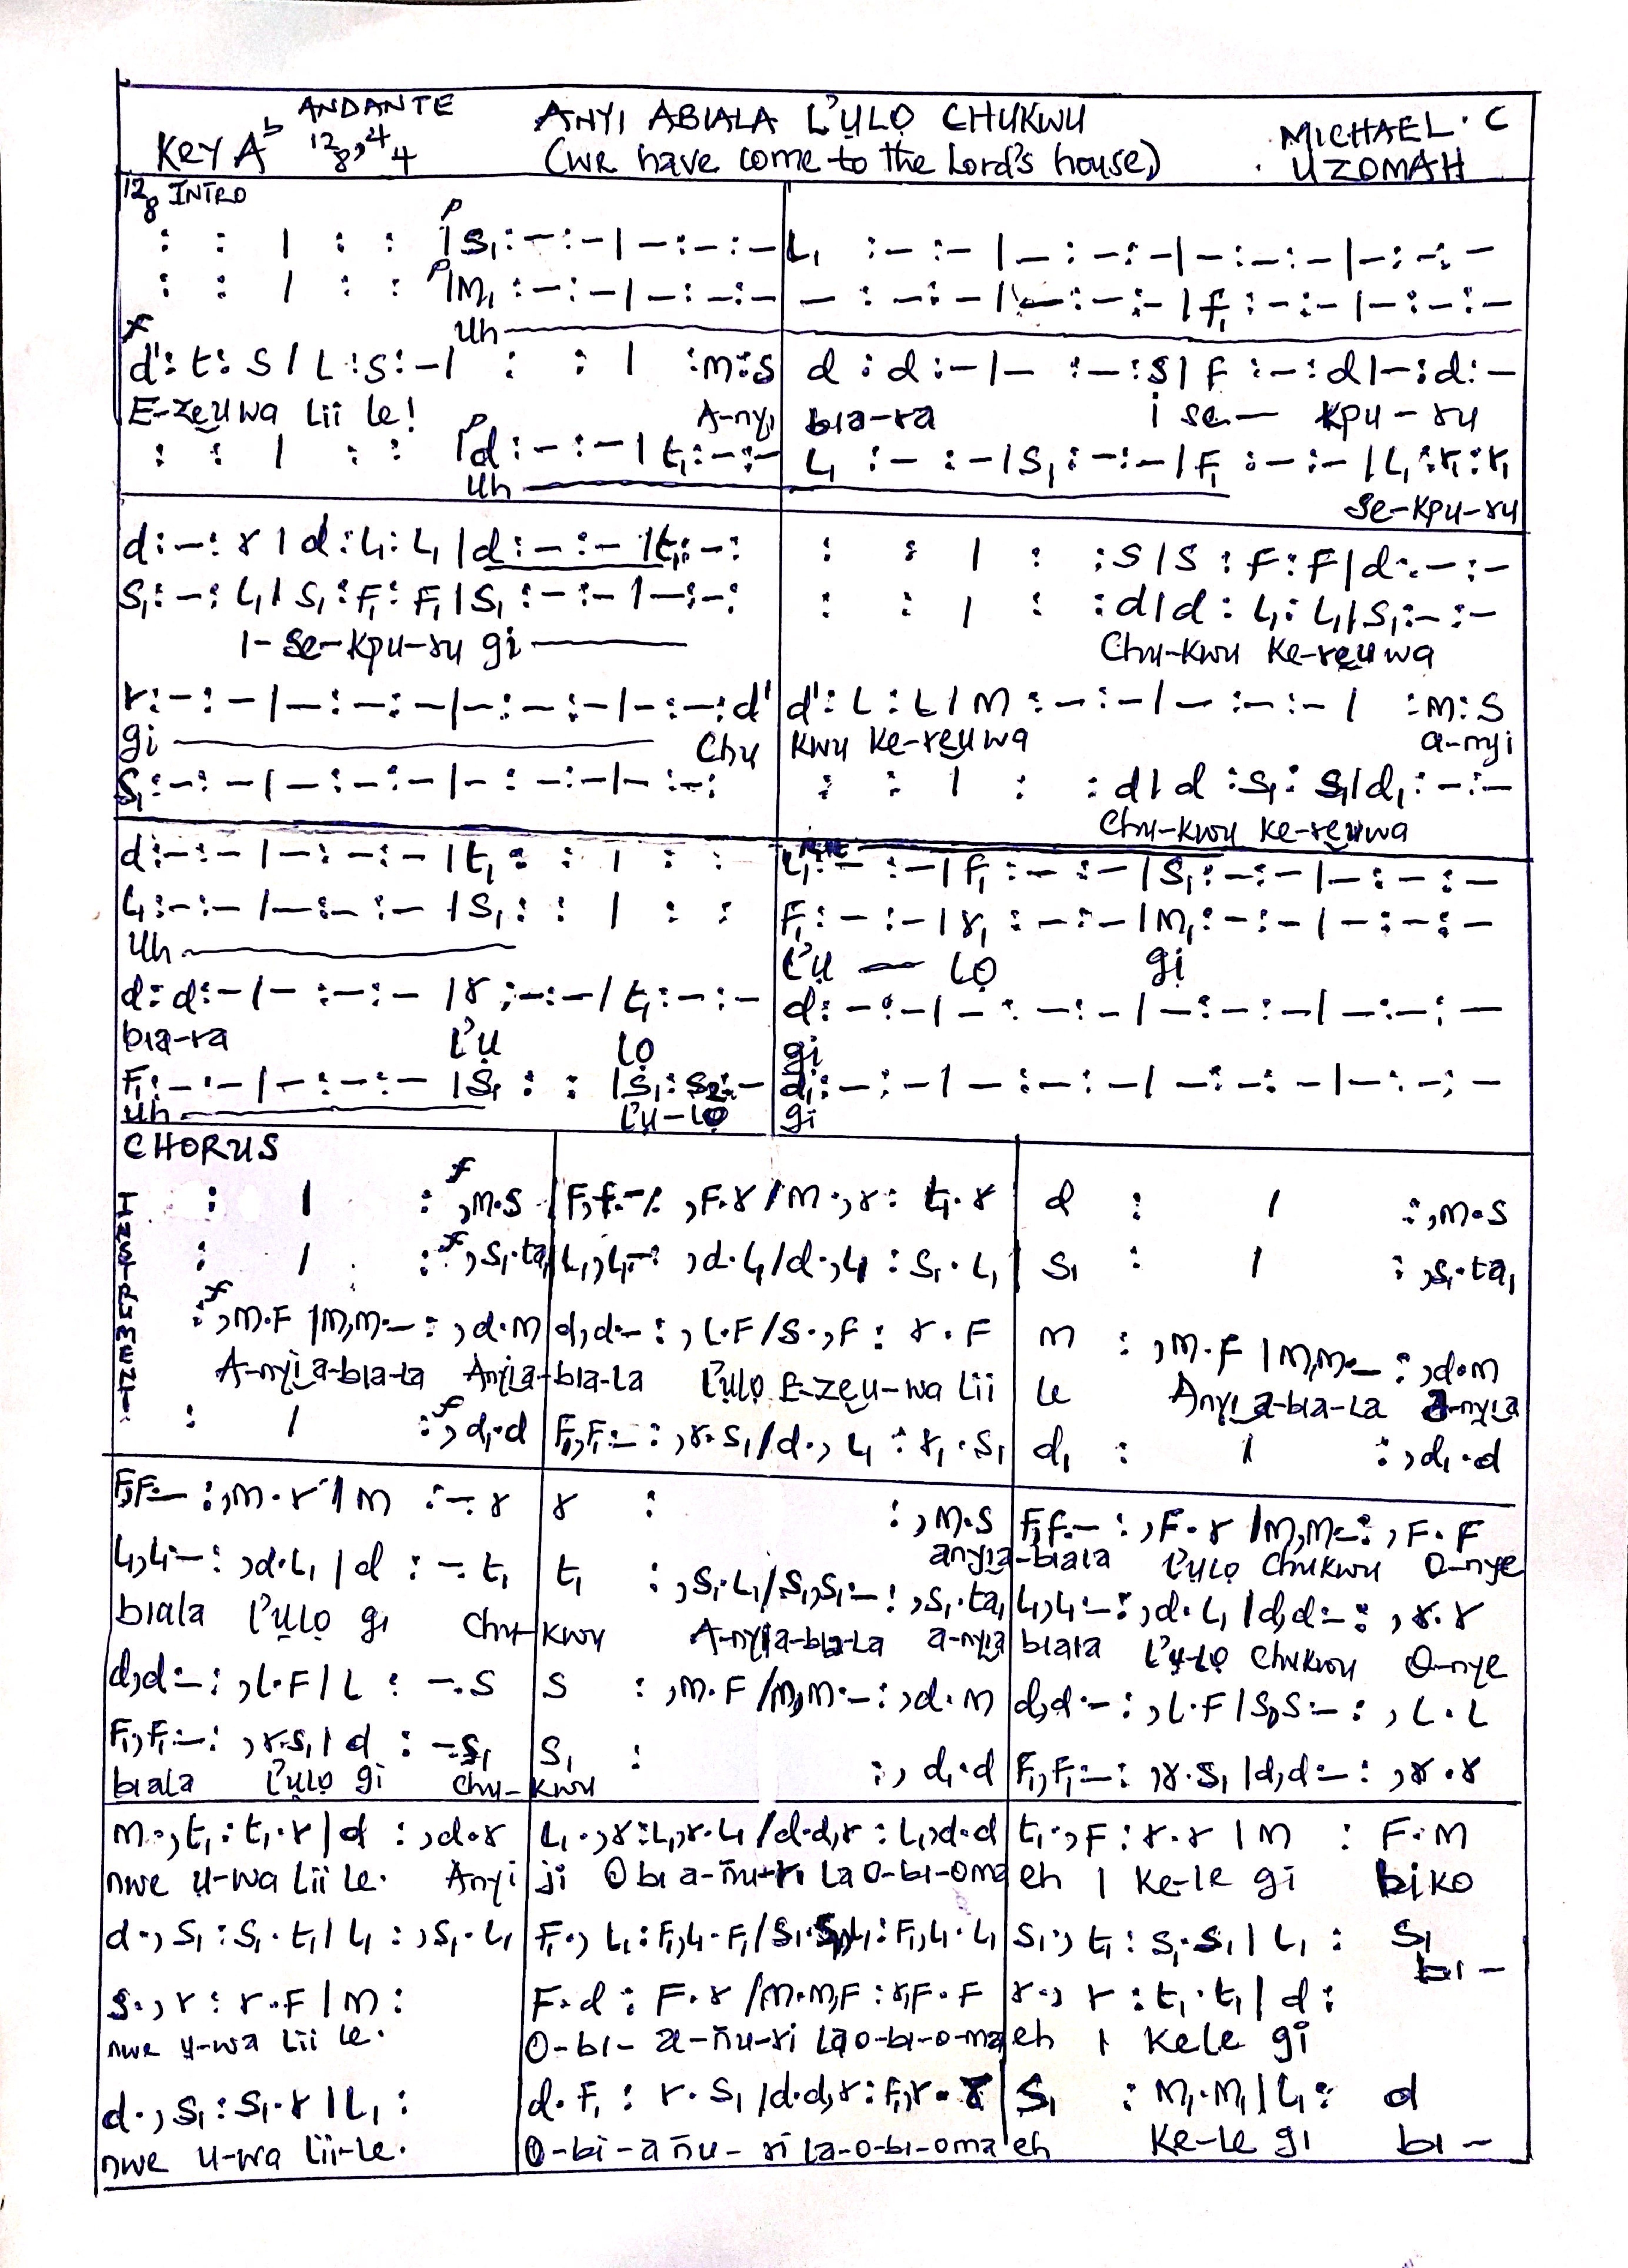 KEY A♭ ANDANTE 12/8, 4/4 ANYI ABIALA L'ỤLỌ CHUKWU MICHAEL . C
(We have come to the Lord's house) UZOMAH
12/8 INTRO
: : | : : p|S₁:-:-|-:-:- L₁ :- :-|-:-:-|-:-:-|-:-:-
: : | : : p|M₁:-:-|-:-:- - :-:-|-:-:-|f₁:-:-|-:-:-
Uh
f
d':t:S|L:S:-| : : | :m:S d:d:-|- :-:S|F:-:d|-:d:-
E-zeụwa Lii le! A-nyị bia-ra i se- kpu-ru
: : | : : p|d:-:-|t₁:-:- L₁:-:-|S₁:-:-|F₁:-:-|L₁:r₁:r₁
Uh Se-kpu-ru
d:-:r|d:L₁:L₁|d:-:-|t₁:-: : : | : :S|S:F:F|d:-:-
S₁:-:L₁|S₁:F₁:F₁|S₁:-:-|-:-: : : | : :d|d:L₁:L₁|S₁:-:-
I-se-kpu-ru gi Chu-kwu ke-reụwa
r:-:-|-:-:-|-:-:-|-:-:d' d':L:L|M:-:-|-:-:-| :m:S
gi Chu kwu ke-reụwa a-nyi
S₁:-:-|-:-:-|-:-:-|-:-: : : | : :d|d:S₁:S₁|d₁:-:-
Chu-kwu ke-reụwa
d:-:-|-:-:-|t₁: : | : : L₁:-:-|F₁:-:-|S₁:-:-|-:-:-
L₁:-:-|-:-:-|S₁: : | : : F₁:-:-|r₁:-:-|M₁:-:-|-:-:-
Uh L'ụ - lọ gị
d:d:-|-:-:-|r:-:-|t₁:-:- d:-:-|-:-:-|-:-:-|-:-:-
bia-ra L'ụ lọ gị
F₁:-:-|-:-:-|S₁: : |S₁:S₂:- d₁:-:-|-:-:-|-:-:-|-:-:-
Uh L'ụ-lọ gị
CHORUS
INSTRUMENT
: | : f,m.S F,f.-:,F.r/m.,r:t₁.r d : | :,m.S
: | : f,S₁.ta₁ L₁,L₁.-:,d.L₁/d.,L₁:S₁.L₁ S₁ : | :,S₁.ta₁
:f,m.F|m,m.-:,d.m d,d.-:,L.F/S.,f:r.F m :,m.F|m,m.-:,d.m
A-nyịa-bia-la Anyịa-bia-la L'ụlọ E-zeụ-wa Lii le Anyịa-bia-la A-nyịa
: | : f,d₁.d F₁,F₁.-:,r.S₁/d.,L₁:r₁.S₁ d₁ : | :,d₁.d
F,F.-:,m.r|m :-.r r : :,m.S F,f.-:,F.r|m,m.-:,F.F
anyịa-biala L'ụlọ Chukwu O-nye
L₁,L₁.-:,d.L₁|d :-.t₁ t₁ :,S₁.L₁/S₁,S₁.-:,S₁.ta₁ L₁,L₁.-:,d.L₁|d,d.-:,r.r
biala L'ụlọ gi Chu-kwu A-nyịa-bia-la a-nyịa biala L'ụ-lọ Chukwu O-nye
d,d.-:,L.F|L :-.S S :,m.F/m,m.-:,d.m d,d.-:,L.F|S,S.-:,L.L
F₁,F₁.-:,r.S₁|d :-.S₁ S₁ : :,d₁.d F₁,F₁.-:,r.S₁|d,d.-:,r.r
biala L'ụlọ gi Chu-kwu
m.,t₁:t₁.r|d :,d.r L₁.,r:L₁,r.L₁/d.d,r:L₁,d.d t₁.,F:r.r|m : F.m
nwe ụ-wa Lii le. Anyi ji Obi a-ñu-ri La o-bi-oma eh I ke-le gi biko
d.,S₁:S₁.t₁|L₁:,S₁.L₁ F₁.,L₁:F₁,L₁.F₁/S₁.S₁,L₁:F₁,L₁.L₁ S₁.,t₁:S₁.S₁|L₁: S₁
bi-
S.,r:r.F|m: F.d:F.r/m.m,F:r,F.F r.,r:t₁.t₁|d:
nwe ụ-wa Lii le. O-bi- a-ñu-ri La o-bi-o-ma eh I kele gi
d.,S₁:S₁.r|L₁: d.F₁:r.S₁/d.d,r:F₁,r.r S₁ :M₁.M₁|L₁: d
nwe ụ-wa Lii-le. O-bi-a ñu-ri la-o-bi-oma eh ke-le gi bi-